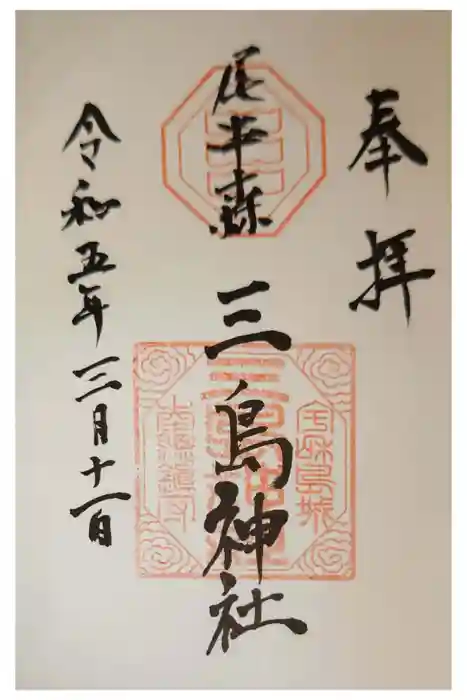 奉拝
尾平森
三島神社
令和五年三月十一日